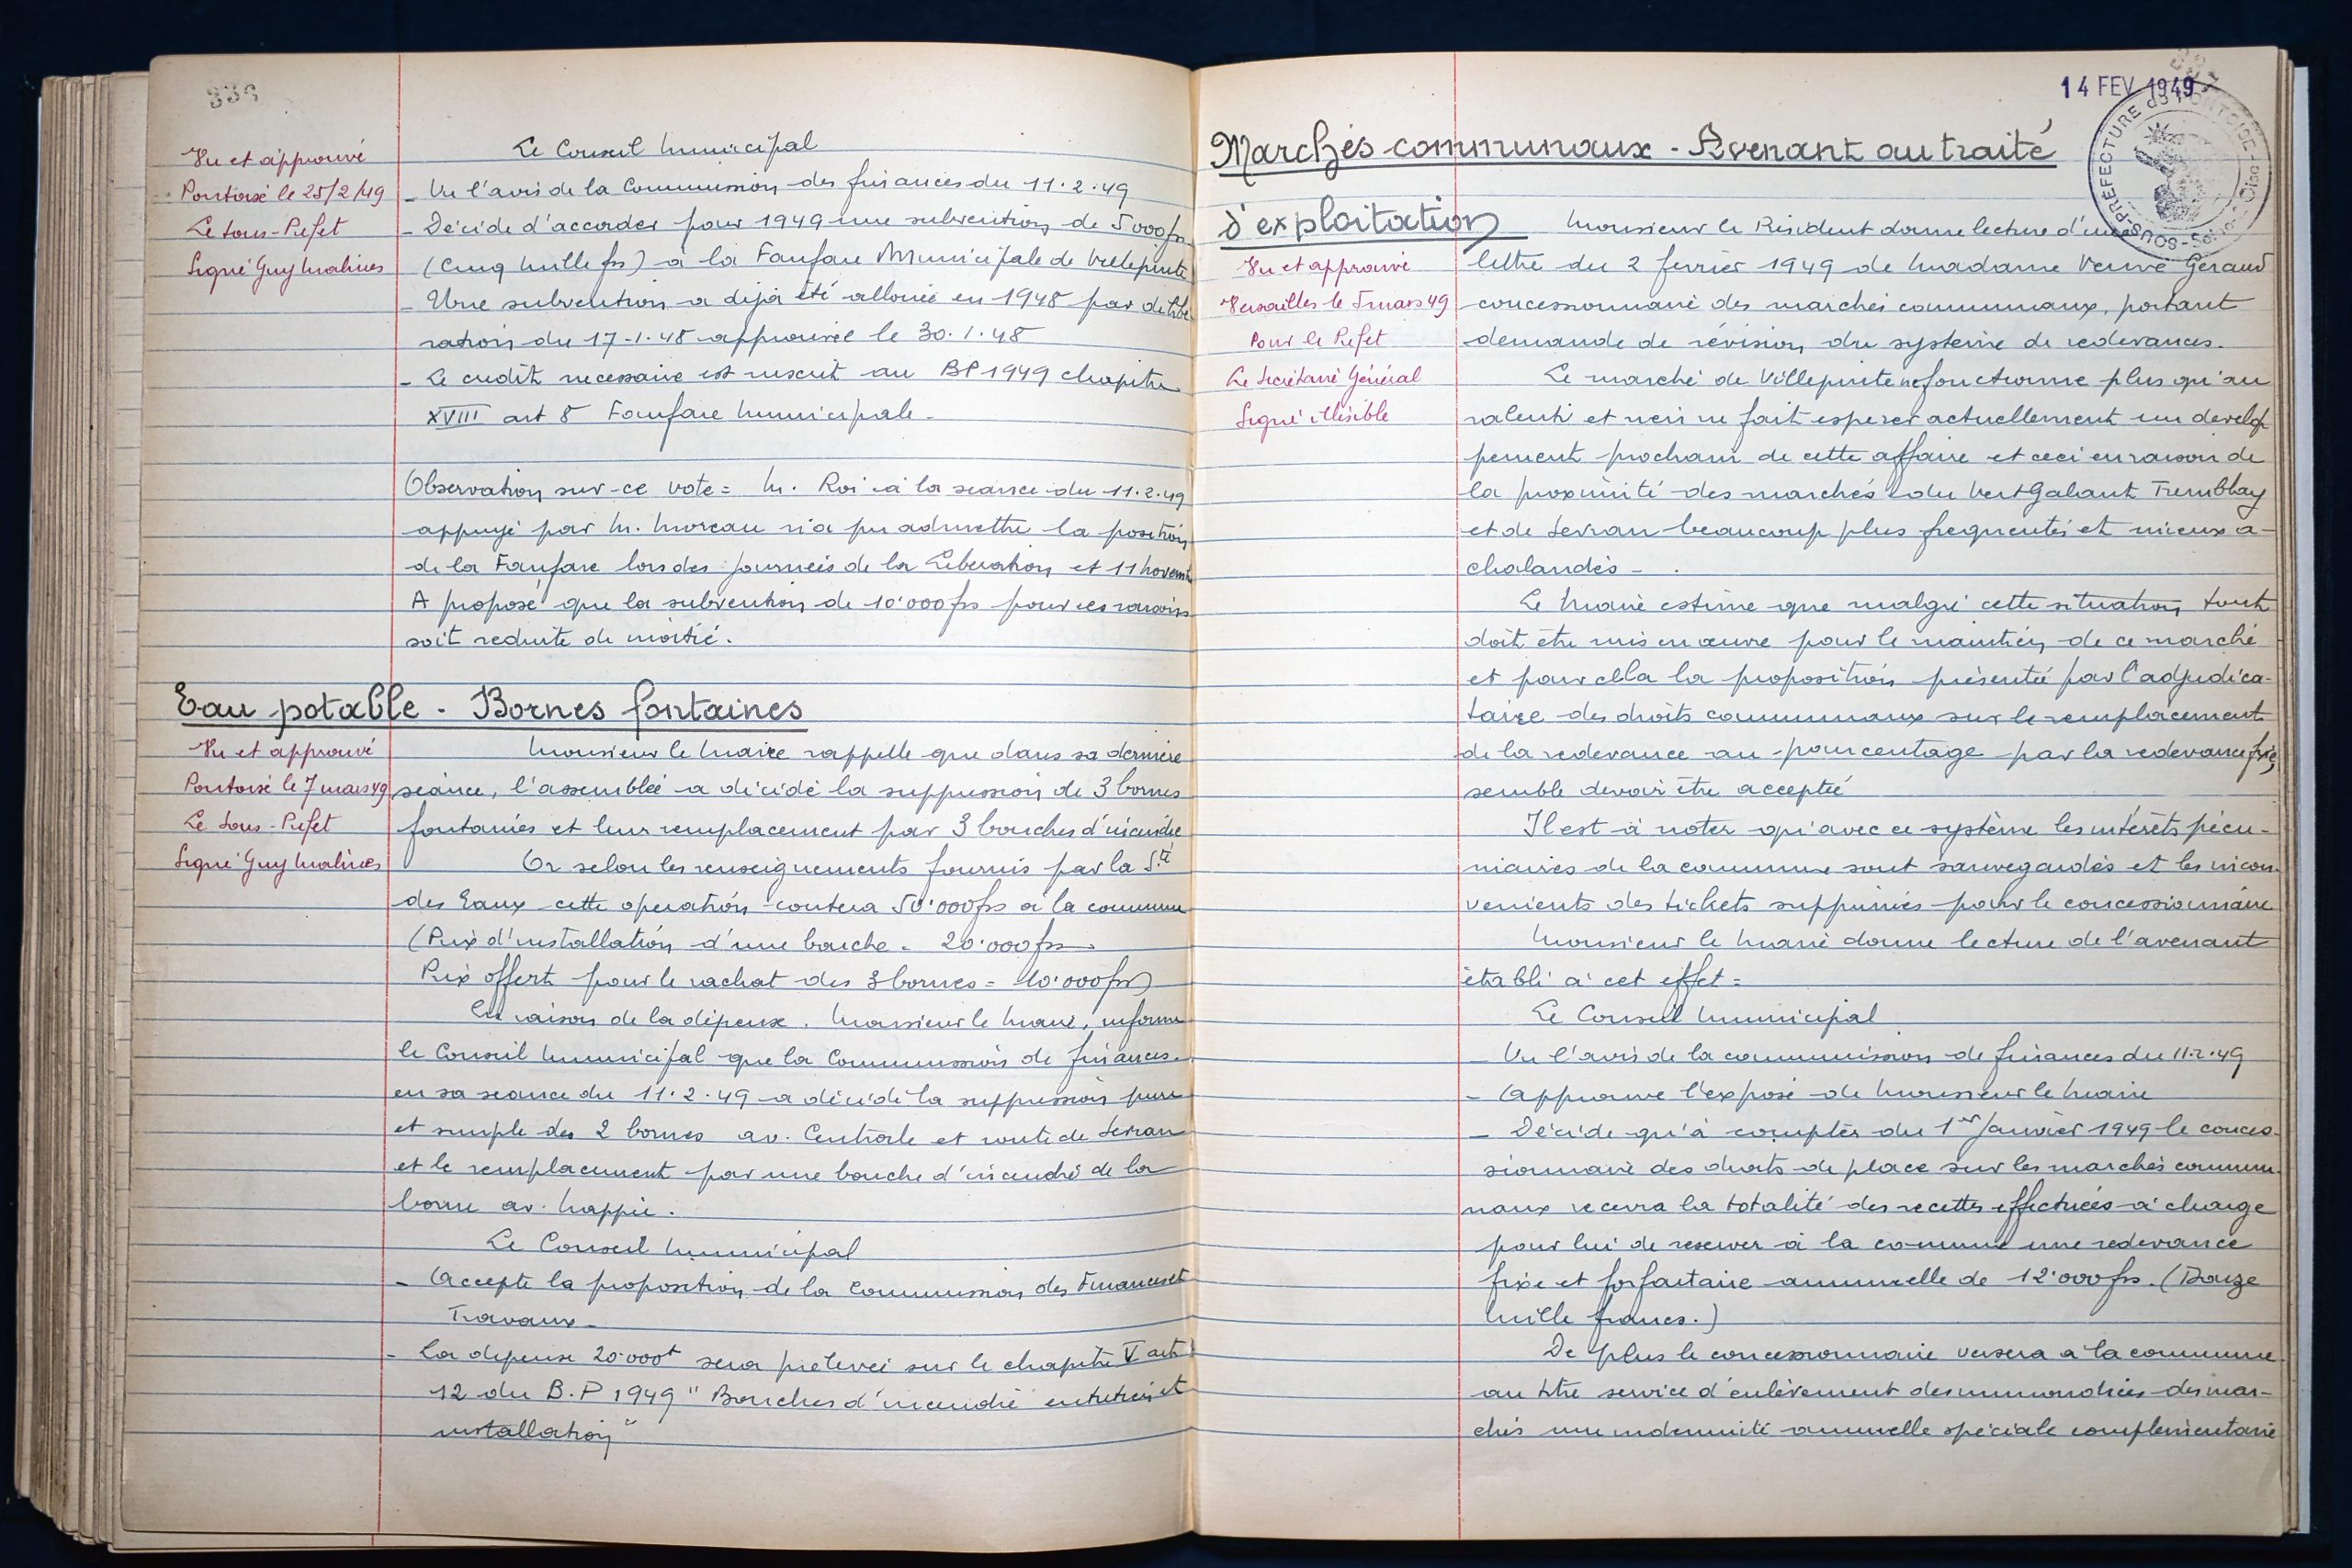 339
Le Conseil Municipal
Vu et approuvé
Pontoise le 25/2/49
Le Sous-Préfet
Signé Guy Malines
- Vu l'avis de la Commission des finances du 11.2.49
- Décide d'accorder pour 1949 une subvention de 5000 frs
(Cinq mille frs) à la Fanfare Municipale de Villepinte
- Une subvention a déjà été allouée en 1948 par délibé
ration du 17.1.48 approuvée le 30.1.48
- Le crédit nécessaire est inscrit au BP 1949 chapitre
XVIII art 8 Fanfare Municipale.
Observation sur ce vote = M. Roi à la séance du 11.2.49
appuyé par M. Moreau n'a pu admettre la position
de la Fanfare lors des journées de la Libération et 11 Novemb
A proposé que la subvention de 10.000 frs pour ces raisons
soit reduite de moitié.
Eau potable - Bornes fontaines
Vu et approuvé
Pontoise le 7 mars 49
Le Sous-Préfet
Signé Guy Malines
Monsieur le Maire rappelle que dans sa dernière
séance, l'assemblée a décidé la suppression de 3 bornes
fontaines et leur remplacement par 3 bouches d'incendie
Or selon les renseignements fournis par la Sté
des Eaux cette opération coutera 50.000 frs à la commune
(Prix d'installation d'une bouche = 20.000 frs.
Prix offert pour le rachat des 3 bornes = 10.000 frs)
En raison de la dépense. Monsieur le Maire, informe
le Conseil Municipal que la Commission de finances.
en sa séance du 11.2.49 a décidé la suppression pure
et simple des 2 bornes av. Centrale et route de Sevran
et le remplacement par une bouche d'incendie de la
borne av.
Le Conseil Municipal
- Accepte la proposition de la Commission des Finances et
Travaux -
- La dépense 20.000f sera prélevée sur le chapitre V art
12 du B.P 1949 " Bouches d'incendie entretien et
installation "
14 FEV 1949
SOUS-PRÉFECTURE de PONTOISE - Seine-Oise
Marchés communaux - Avenant au traité
d'exploitation
Vu et approuvé
Versailles le 5 mars 49
Pour le Préfet
Le Secrétaire Général
Signé illisible
Monsieur le Président donne lecture d'une
lettre du 2 février 1949 de Madame Veuve Géraud
concessionnaire des marchés communaux, portant
demande de révision du système de redevances.
Le marché de Villepinte ne fonctionne plus qu'au
ralenti et rien ne fait espérer actuellement un dévelop
pement prochain de cette affaire et ceci en raison de
la proximité des marchés du Vert Galant Tremblay
et de Sevran beaucoup plus fréquentés et mieux a-
chalandés -
Le Maire estime que malgré cette situation tout
doit être mis en œuvre pour le maintien de ce marché
et pour cela la proposition présentée par l'adjudica-
taire des droits communaux sur le remplacement
de la redevance au pourcentage par la redevance fixe,
semble devoir être acceptée
Il est à noter qu'avec ce système les intérêts pécu-
niaires de la commune sont sauvegardés et les incon
venients des tickets supprimés pour le concessionnaire
Monsieur le Maire donne lecture de l'avenant
établi à cet effet =
Le Conseil Municipal
- Vu l'avis de la commission de finances du 11.2.49
- Approuve l'exposé de Monsieur le Maire
- Décide qu'à compter du 1er Janvier 1949 le conces-
sionnaire des droits de place sur les marchés commu
naux recevra la totalité des recettes effectuées à charge
pour lui de reserver à la commune une redevance
fixe et forfaitaire annuelle de 12.000 frs. (Douze
Mille francs.)
De plus le concessionnaire versera à la commune
au titre service d'enlèvement des immondices des mar-
chés une indemnité annuelle spéciale complémentaire